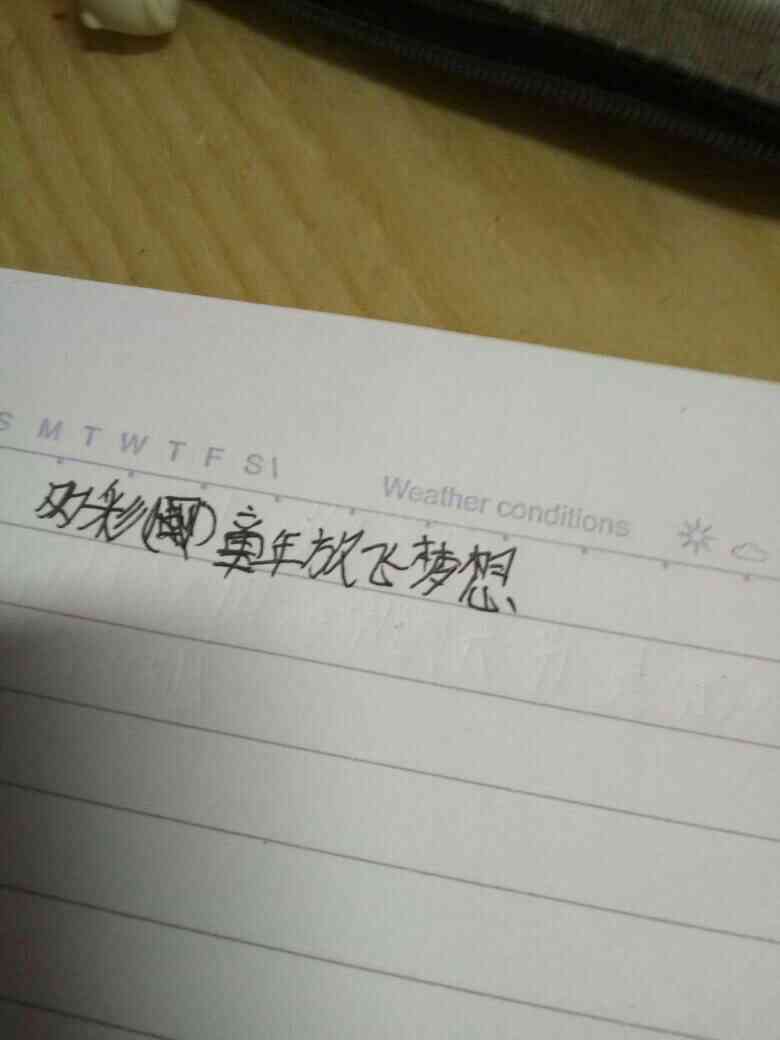 S M T W T F S\ Weather conditions
多彩童年放飞梦想